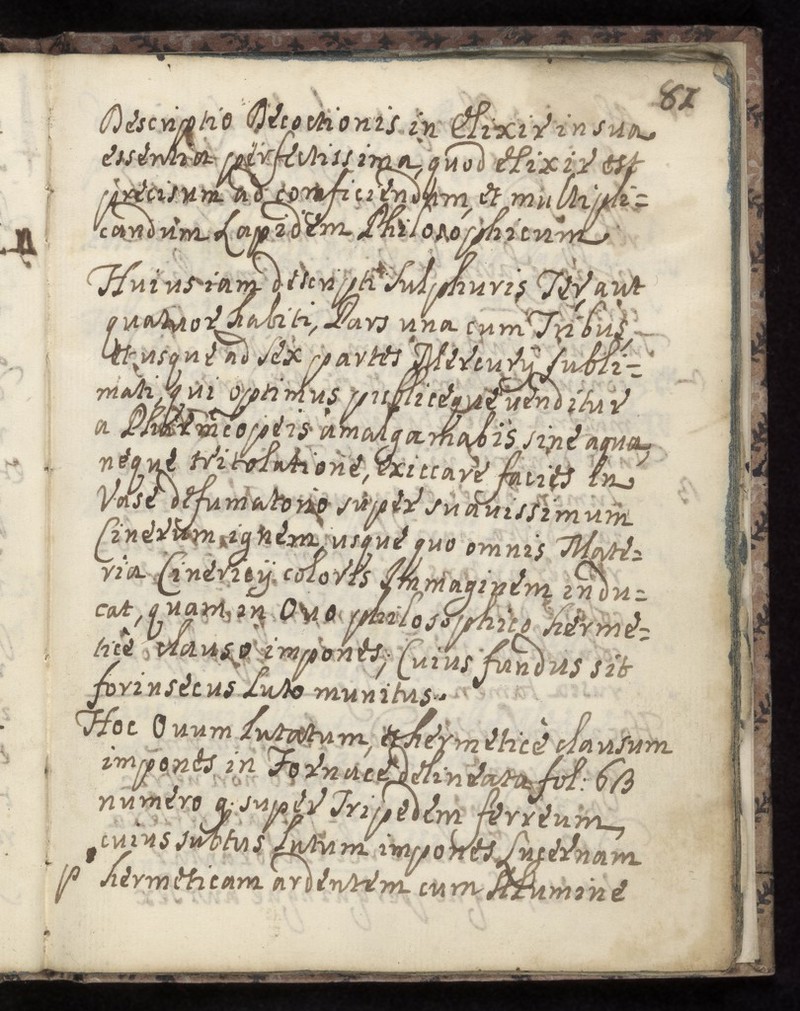 87
Descriptio Decoctionis in Elixir in sua
essentia perfectissima, quod elixir est
precisum ad comficiendum, et multipli=
candum Lapidem Philosophicum
Huius iam descripti Sulphuris Ter, aut
quatuor habiti, Pars una cum Tribus,
et usque ad sex partes Mercurÿ subli=
mati, qui optimus publiceque venditur
a Pharmcopeis amalgamabis, sine aqua,
neque tritolatione, exiccare facies In
Vase defumatorio super suavissimum
Cinerum ignem, usque quo omnis Mate=
ria Cinericÿ coloris Immaginem indu=
cat, quam in Ovo philosophico herme=
ticè clauso impones; Cuius fundus sit
forinsecus Luto munitus.
Hoc Ovum lutatum, et hermeticè clausum
impones in Fornace delineata fol: 63
numero 9. super Tripedem ferreum,
cuius subtus Lutum impones Lucernam
p hermeticam ardentem cum